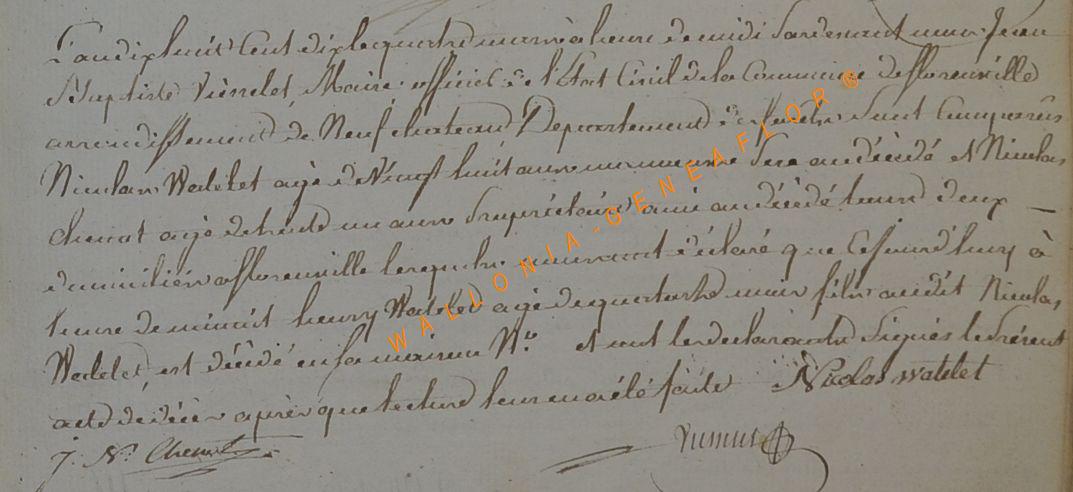 L'an dix huit cent dix le quatre mars à heure de midi Pardevant nous Jean
Baptiste Viersselet, Maire officier de l'Etat Civil de la Commune de florenville
arrondissement de Neufchateau Departement des forets sont comparus
Nicolas Watelet agé de Vingt huit ans père au décédé et Nicolas
chenot agé de trente un ans Propriétaire ami au décédé tous deux
domiciliés a florenville lesquels nous ont déclaré que cejourd'huy à
heure de minuit henry Watelet agé de quatorze mois fils audit Nicolas
Watelet, est décédé en sa maison No et ont les declarants signés le Présent
acte de décès après que lecture leur en a été faite Nicolas watelet
J. N. Chenot
WALLONIA-GENEAFLOR®